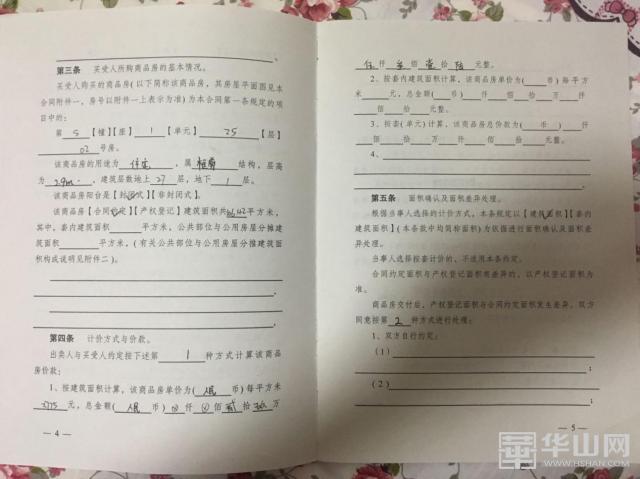 第三条 买受人所购商品房的基本情况。
买受人购买的商品房(以下简称该商品房,其房屋平面图见本
合同附件一,房号以附件一上表示为准)为本合同第一条规定的项
目中的:
第 5 【幢】【座】 1 【单元】 25 【层】
02 号房。
该商品房的用途为 住宅 ,属 框剪 结构,层高
为 2.9m ,建筑层数地上 27 层,地下 1 层。
该商品房阳台是【封闭式】【非封闭式】。
该商品房【合同约定】【产权登记】建筑面积共 平方米,
其中,套内建筑面积 平方米,公共部位与公用房屋分摊建
筑面积 平方米,(有关公共部位与公用房屋分摊建筑面
积构成说明见附件二)。
第四条 计价方式与价款。
出卖人与买受人约定按下述第 1 种方式计算该商品
房价款:
1、按建筑面积计算,该商品房单价为( 人民 币)每平方米
元,总金额( 人民 币) 仟 佰 贰 拾 万
— 4 —
仟 佰 壹 拾 陆 元整。
2、按套内建筑面积计算,该商品房单价为( 币)每平方
米 元,总金额( 币) 仟 佰 拾 万 仟
佰 拾 元整。
3、按套(单元)计算,该商品房总价款为( 币) 仟
佰 拾 万 仟 佰 拾 元整。
4、
第五条 面积确认及面积差异处理。
根据当事人选择的计价方式,本条规定以【建筑面积】【套内
建筑面积】(本条款中均简称面积)为依据进行面积确认及面积差
异处理。
当事人选择按套计价的,不适用本条约定。
合同约定面积与产权登记面积有差异的,以产权登记面积为
准。
商品房交付后,产权登记面积与合同约定面积发生差异,双方
同意按第 2 种方式进行处理:
1、双方自行约定:
(1) ;
(2)
;
— 5 —
华山网
WWW.HSHAN.COM